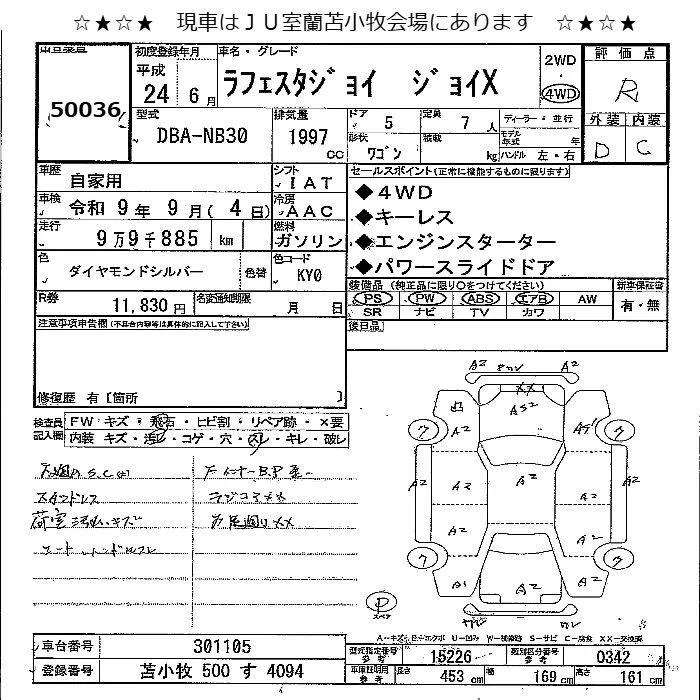 ☆★☆★ 現車はＪＵ室蘭苫小牧会場にあります ☆★☆★
50036
初度登録年月
平成
24 6 月
車名・グレード
ラフェスタジョイ ジョイX
2WD
4WD
評価点
R
外装 内装
D C
型式
DBA-NB30
排気量
1997 CC
ドア
5
定員
7 人
形状
ワゴン
積載
kg
ディーラー・並行
モデル年式 年
ハンドル 左・右
車歴
自家用
シフト
IAT
車検
令和 9 年 9 月( 4 日)
冷房
AAC
走行
9万9千885 km
燃料
ガソリン
色
ダイヤモンドシルバー
色替
色コード
KY0
R券
11,830 円
名変通知期限
月 日
セールスポイント(正常に機能するものに限ります)
◆4WD
◆キーレス
◆エンジンスターター
◆パワースライドドア
装備品 (純正品に限り○をつけてください)
PS PW ABS エアB AW
SR ナビ TV カワ
新車保証書
有・無
後日品
注意事項申告欄(不具合内容等は具体的に記入して下さい)
修復歴 有 [箇所 ]
検査員記入欄
FW キズ・飛石・ヒビ割・リペア跡・×要
内装 キズ・汚レ・コゲ・穴・スレ・キレ・破レ
荷室汚れ、キズ
A2 A2
××
A2 AS2
ワ ワ
A2 A2 A2 A2
A2 A2
ワ ワ
A1 A2 A2
P
スペア
A-キズ
U-凹み W-補修跡 S-サビ C-腐食 XX-交換済
車台番号
301105
登録番号
苫小牧 500 す 4094
型式指定番号
参考
15226
類別区分番号
参考
0342
車庫証明用
参考
長さ
453 cm
幅
169 cm
高さ
161 cm